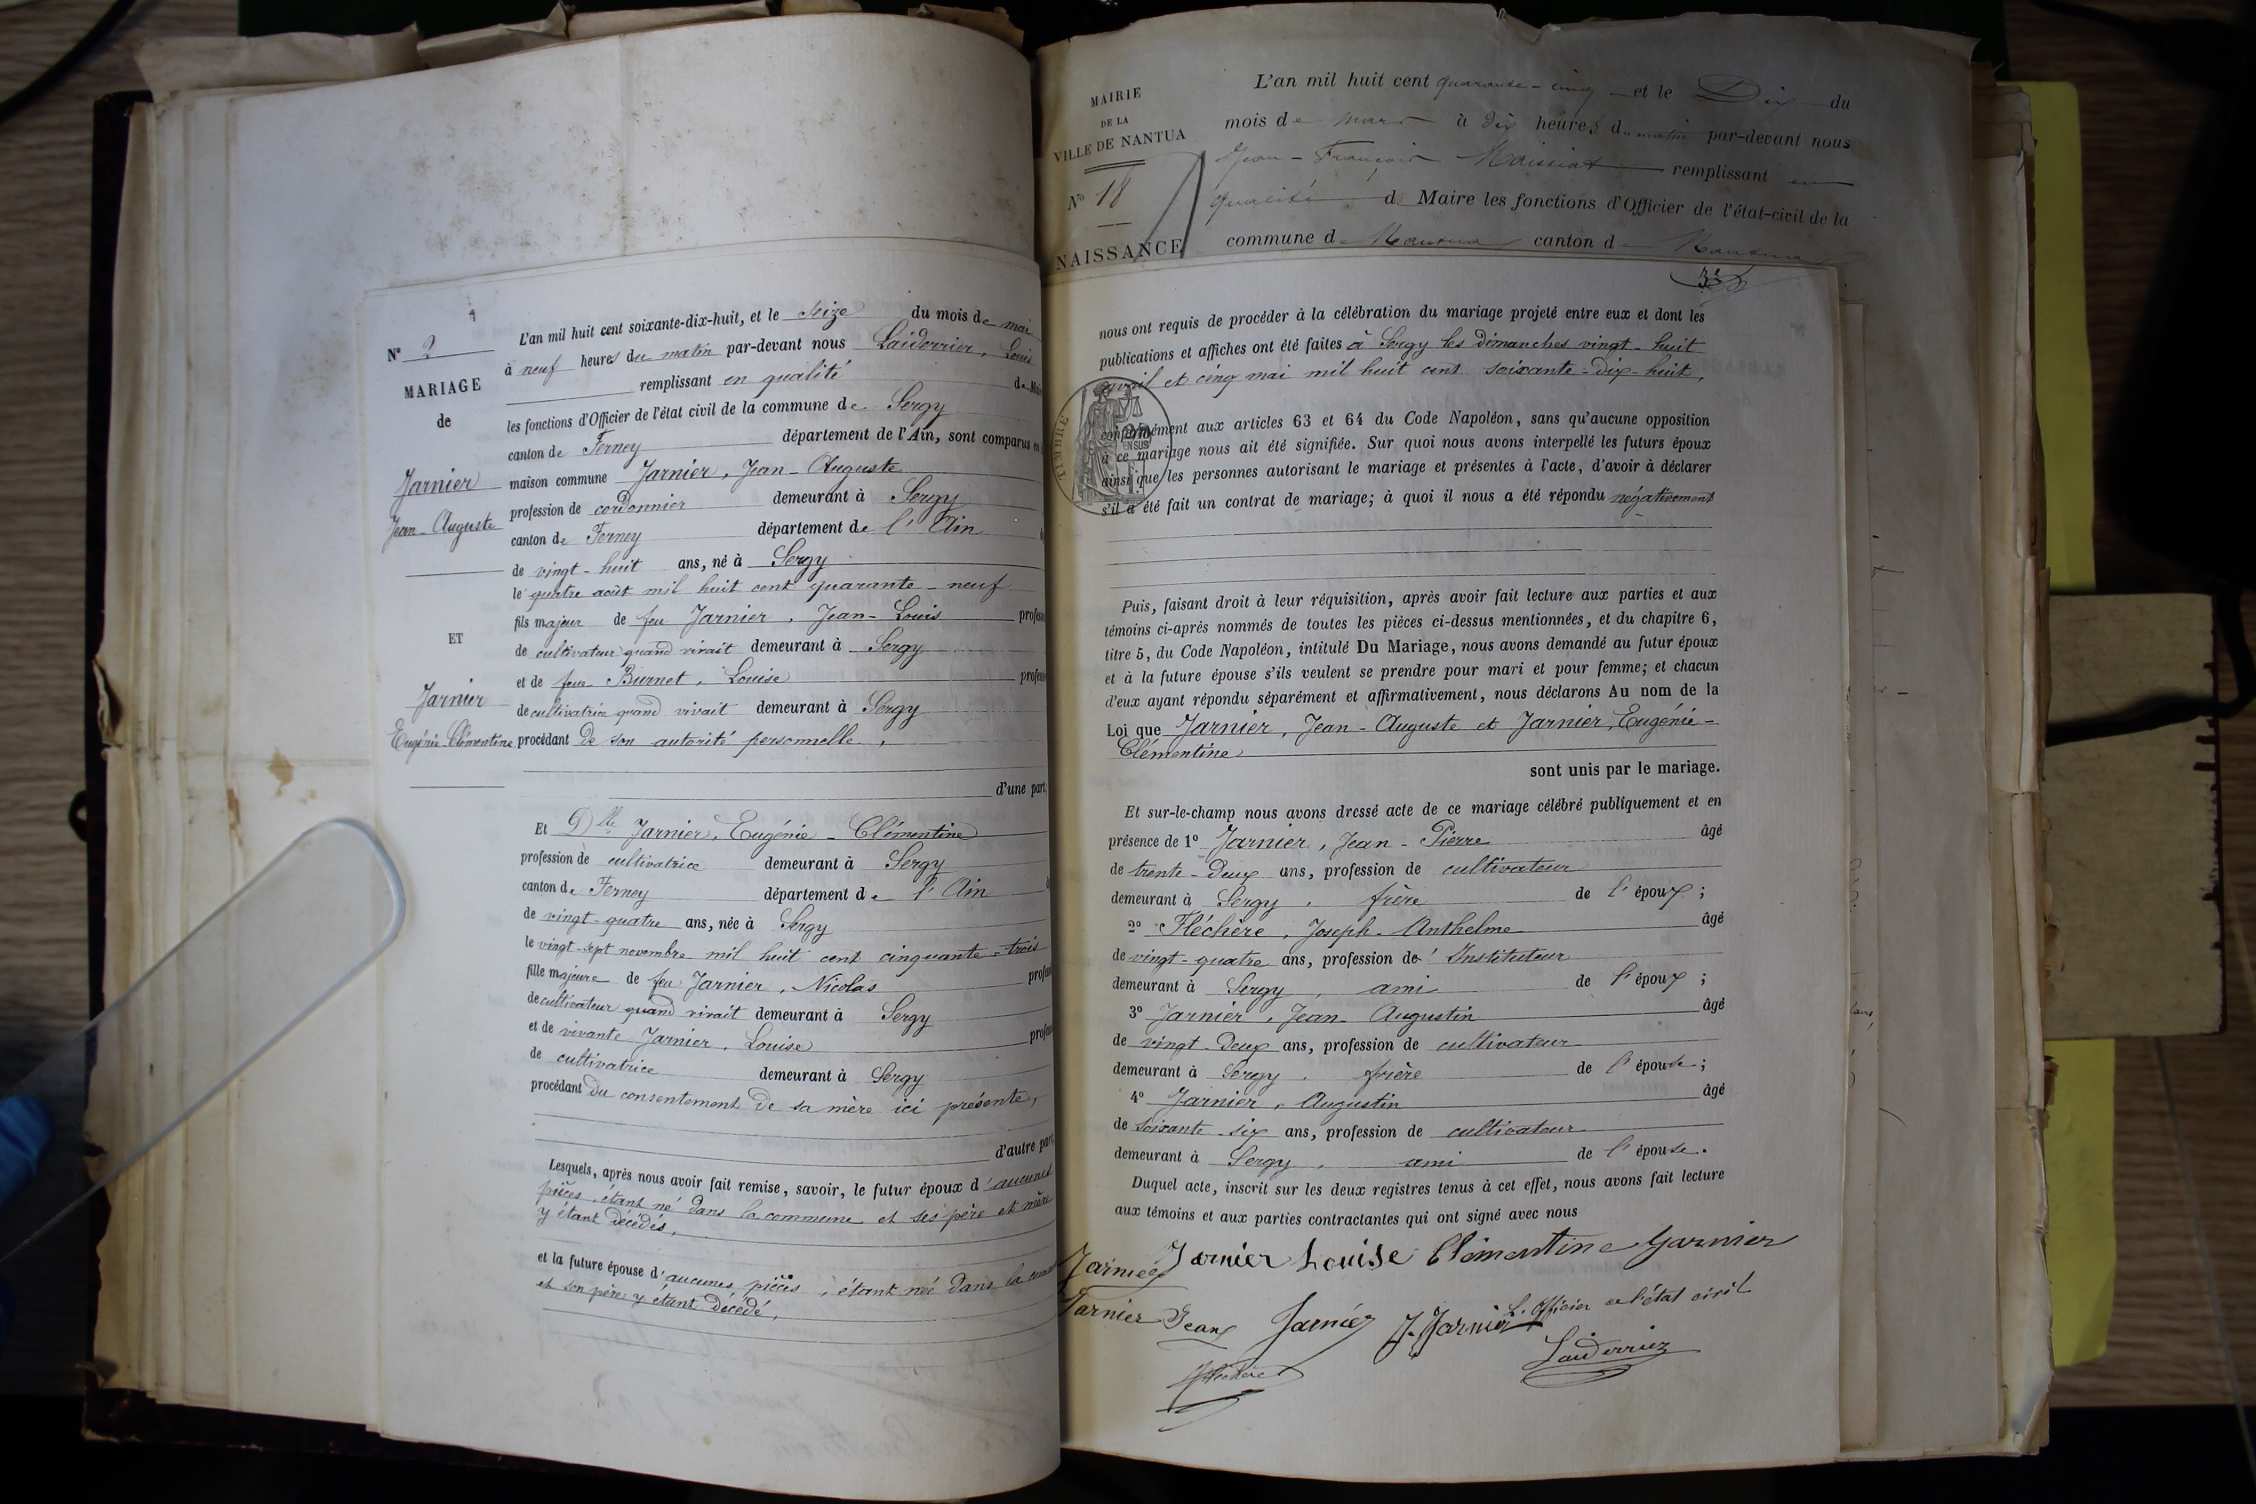 N° 2
MARIAGE
de
Jarnier
Jean-Auguste
ET
Jarnier
Eugénie-Clémentine
L'an mil huit cent soixante-dix-huit, et le seize du mois de mai
à neuf heures du matin par-devant nous Laiderrier, Louis
remplissant en qualité de Mai
les fonctions d'Officier de l'état civil de la commune de Sergy
canton de Ferney département de l'Ain, sont comparus en
maison commune Jarnier, Jean-Auguste
profession de cordonnier demeurant à Sergy
canton de Ferney département de l'Ain
de vingt-huit ans, né à Sergy
le quatre août mil huit cent quarante-neuf
fils majeur de feu Jarnier, Jean-Louis profess
de cultivateur quand vivait demeurant à Sergy
et de feue Burnet, Louise profess
de cultivatrice quand vivait demeurant à Sergy
procédant de son autorité personnelle,
d'une part,
Et Dlle Jarnier, Eugénie-Clémentine
profession de cultivatrice demeurant à Sergy
canton de Ferney département de l'Ain
de vingt-quatre ans, née à Sergy
le vingt-sept novembre mil huit cent cinquante-trois
fille majeure de feu Jarnier, Nicolas profess
de cultivateur quand vivait demeurant à Sergy
et de vivante Jarnier, Louise profess
de cultivatrice demeurant à Sergy
procédant du consentement de sa mère ici présente,
d'autre part,
Lesquels, après nous avoir fait remise, savoir, le futur époux d'aucunes
pièces, étant né dans la commune et ses père et mère
y étant décédés,
et la future épouse d'aucunes pièces, étant née dans la
et son père y étant décédé,
MAIRIE
DE LA
VILLE DE NANTUA
No 18
NAISSANCE
L'an mil huit cent quarante-cinq et le Dix du
mois de mars à dix heures du matin par-devant nous
Jean-François Maissiat remplissant en
qualité de Maire les fonctions d'Officier de l'état-civil de la
commune de Nantua canton de Nantua
nous ont requis de procéder à la célébration du mariage projeté entre eux et dont les
publications et affiches ont été faites à Sergy les dimanches vingt-huit
avril et cinq mai mil huit cent soixante-dix-huit,
TIMBRE
EN SUS
conformément aux articles 63 et 64 du Code Napoléon, sans qu'aucune opposition
à ce mariage nous ait été signifiée. Sur quoi nous avons interpellé les futurs époux
ainsi que les personnes autorisant le mariage et présentes à l'acte, d'avoir à déclarer
s'il a été fait un contrat de mariage; à quoi il nous a été répondu négativement
Puis, faisant droit à leur réquisition, après avoir fait lecture aux parties et aux
témoins ci-après nommés de toutes les pièces ci-dessus mentionnées, et du chapitre 6,
titre 5, du Code Napoléon, intitulé Du Mariage, nous avons demandé au futur époux
et à la future épouse s'ils veulent se prendre pour mari et pour femme; et chacun
d'eux ayant répondu séparément et affirmativement, nous déclarons Au nom de la
Loi que Jarnier, Jean-Auguste et Jarnier, Eugénie-
Clémentine
sont unis par le mariage.
Et sur-le-champ nous avons dressé acte de ce mariage célébré publiquement et en
présence de 1° Jarnier, Jean-Pierre âgé
de trente-deux ans, profession de cultivateur
demeurant à Sergy, frère de l'époux;
2° Fléchère, Joseph-Anthelme âgé
de vingt-quatre ans, profession de Instituteur
demeurant à Sergy, ami de l'époux;
3° Jarnier, Jean-Augustin âgé
de vingt-deux ans, profession de cultivateur
demeurant à Sergy, frère de l'épouse;
4° Jarnier, Augustin âgé
de soixante-six ans, profession de cultivateur
demeurant à Sergy, ami de l'épouse.
Duquel acte, inscrit sur les deux registres tenus à cet effet, nous avons fait lecture
aux témoins et aux parties contractantes qui ont signé avec nous
Jarnier Jarnier Louise Clémentine Jarnier
Jarnier Jean Jarnier J. Jarnier L'Officier de l'état civil
Fléchère Laiderrier